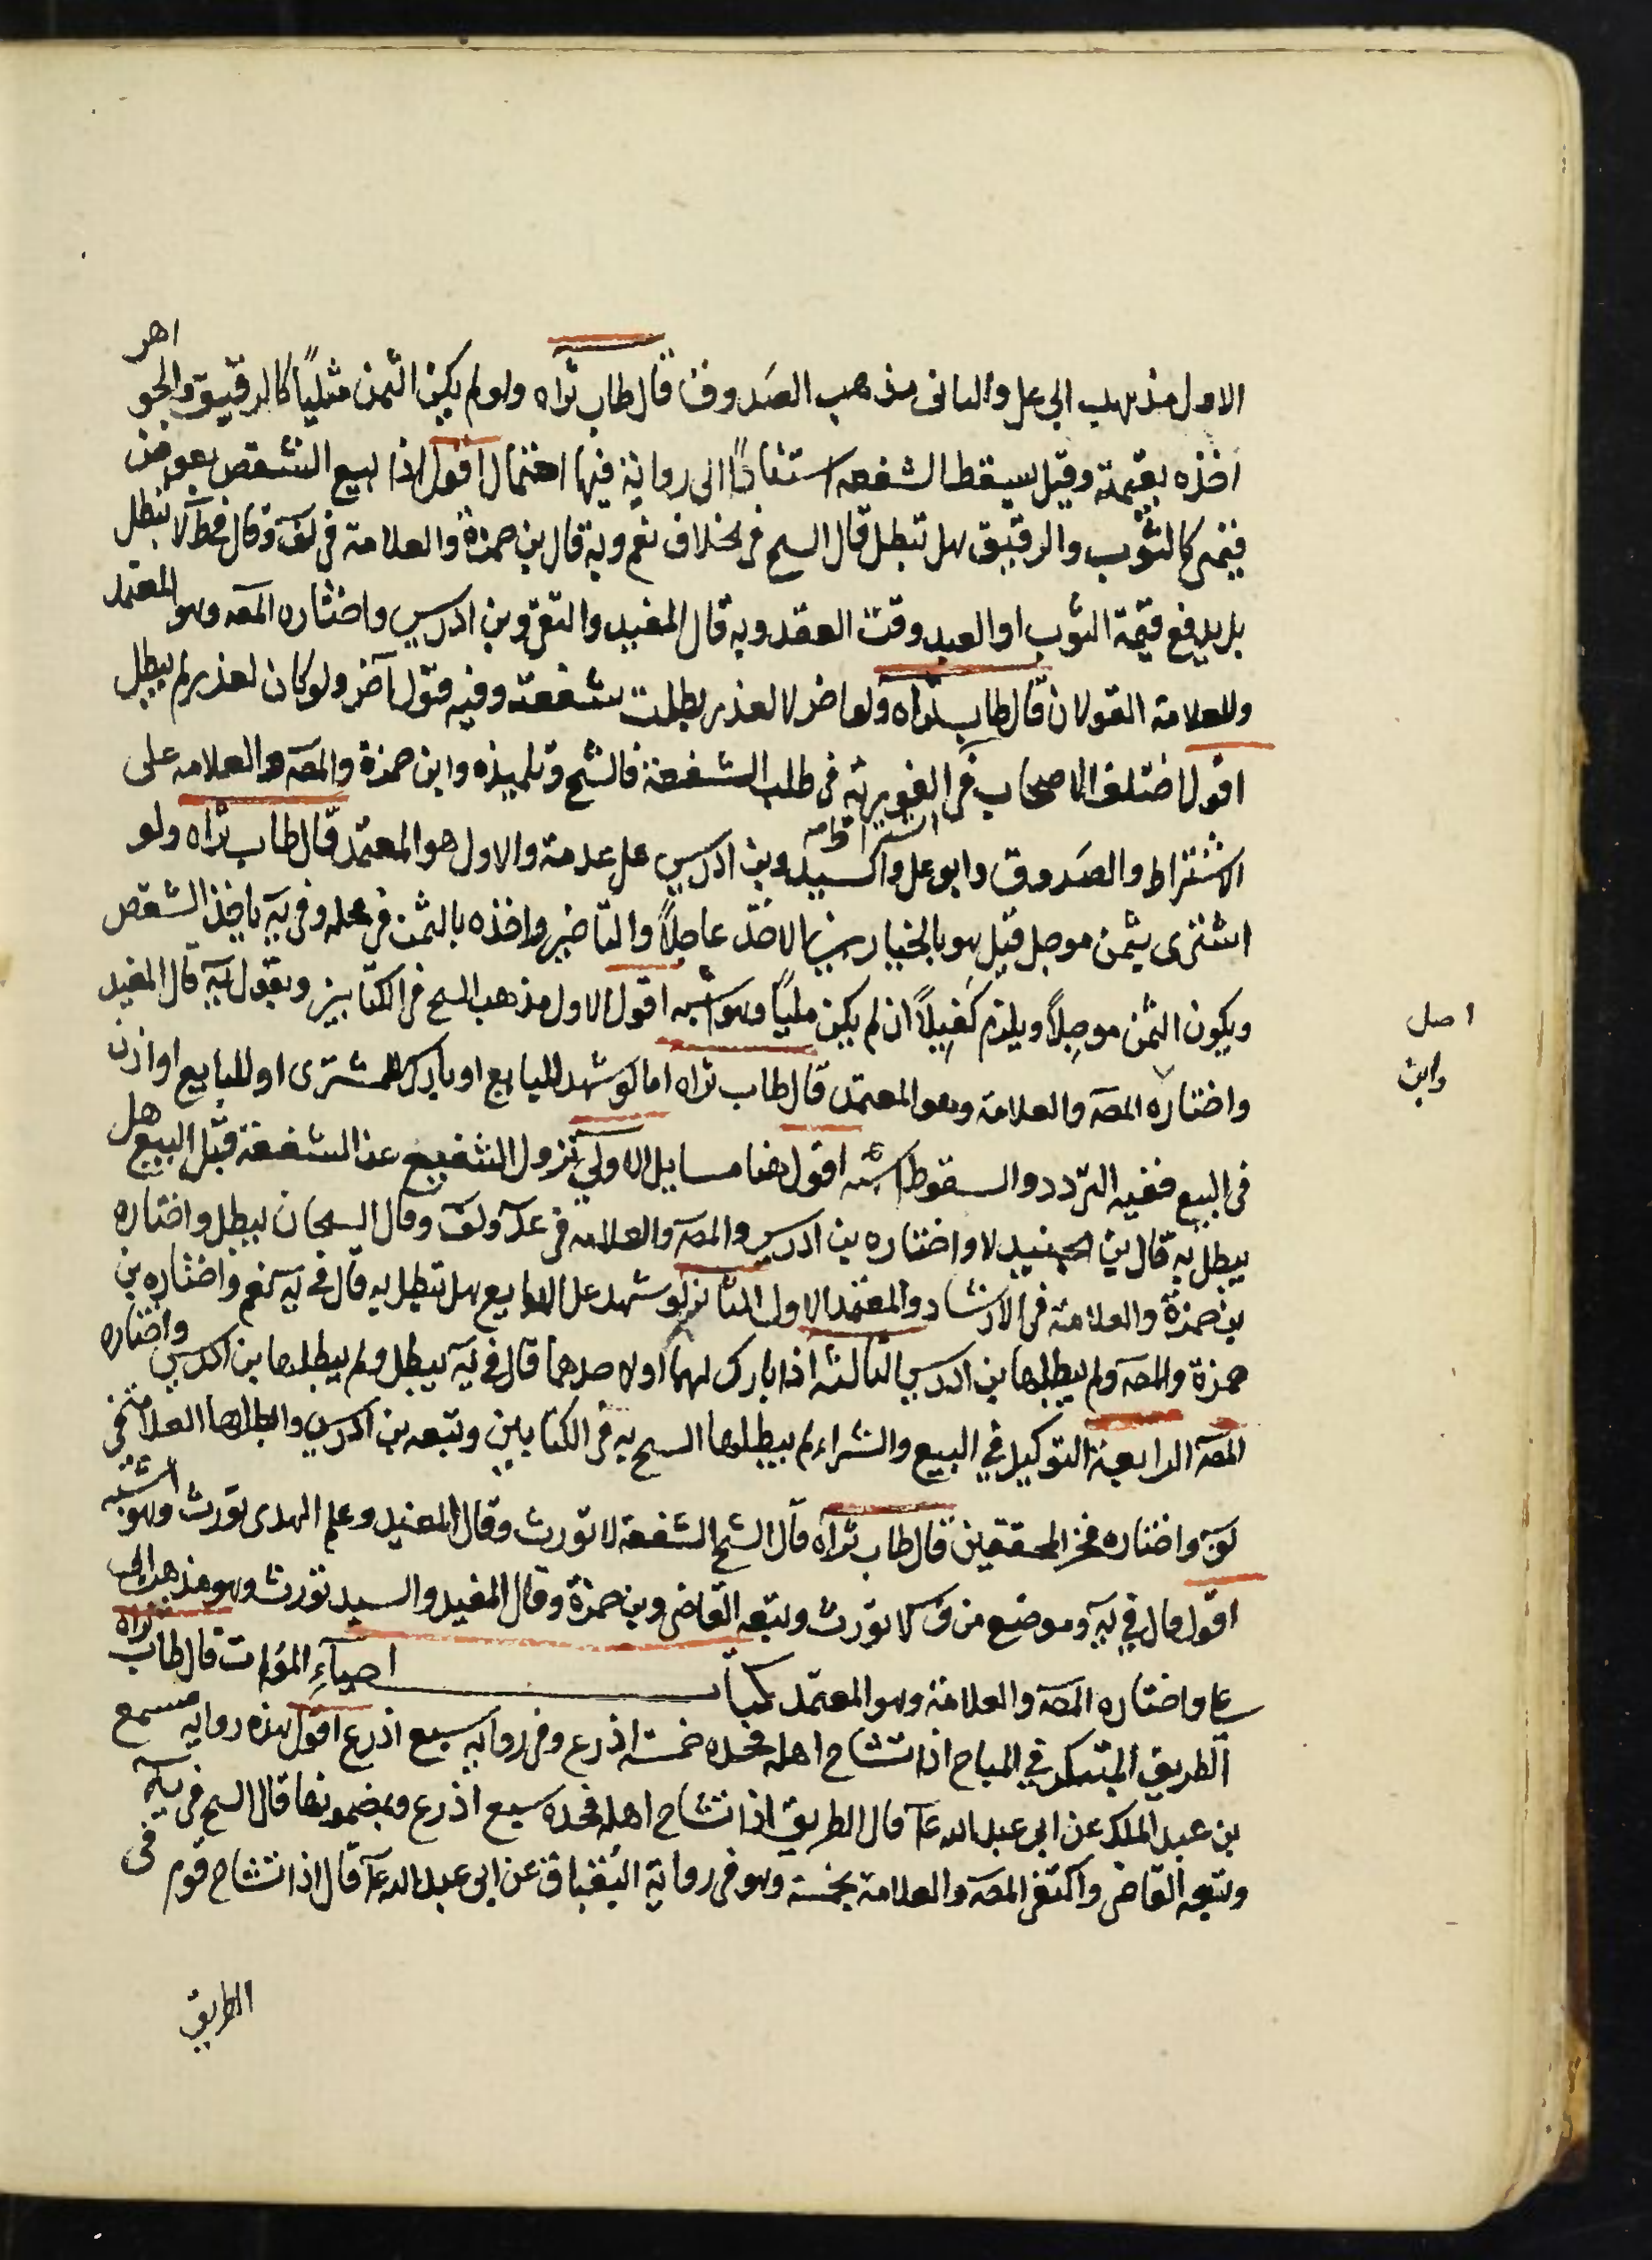 الاول مذهب ابي علي والثاني مذهب الصدوق قال طاب ثراه ولو لم يكن الثمن مثليا كالرقيق والجواهر
اخذه بقيمته وقيل يسقط الشفعه استنادا الى رواية فيها احتمال اقول اذا بيع الشقص بعوض
قيمي كالثوب والرقيق هل تبطل قال الشيخ في الخلاف نعم وبه قال بن حمزة والعلامة في لف وقال في ط لا تبطل
بل يدفع قيمة الثوب او العبد وقت العقد وبه قال المفيد والتقي وبن ادريس واختاره المصه وهو المعتمد
وللعلامة القولان قال طاب ثراه ولو اخر لا لعذر بطلت شفعته وفيه قول آخر ولو كان لعذر لم يبطل
اقول اختلف الاصحاب في الفورية في طلب الشفعة فالشيخ وتلميذه وابن حمزة والمصه والعلامه على
اشتراطه
الاشتراط والصدوق وابو علي والسيد وبن ادريس على عدمه والاول هو المعتمد قال طاب ثراه ولو
اشترى بثمن موجل قيل هو بالخيار بين الاخذ عاجلا والتاخير واخذه بالثمن في محله وفي يه ياخذ الشقص
ويكون الثمن موجلا ويلزم كفيلا ان لم يكن مليا وهو اشبه اقول الاول مذهب الشيخ في الكتابين وبقول يه قال المفيد
اصل
وابن
واختاره المصه والعلامة وهو المعتمد قال طاب ثراه اما لو شهد للبايع او بارك للمشترى او للبايع او اذن
في البيع ففيه التردد والسقوط اشبه اقول هنا مسايل الاولي نزول الشفيع عن الشفعة قبل البيع هل
يبطل به قال بن الجنيد لا واختاره بن ادريس والمصه والعلامه في عد ولف وقال الشيخان يبطل واختاره
بن حمزة والعلامة في الارشاد والمعتمد الاول الثانى لو شهد على البايع هل تبطل به قال في يه نعم واختاره بن
حمزة والمصه ولم يبطلها بن ادريس الثالثه اذا بارك لهما او لاحدهما قال في يه يبطل ولم يبطلها بن ادريس واختاره
المصه الرابعة التوكيل في البيع والشراء لم يبطلها الشيخ به في الكتابين وتبعه بن ادريس وابطلها العلامة في
لف واختاره فخر المحققين قال طاب ثراه قال الشيخ الشفعة لا تورث وقال المفيد وعلم الهدى تورث وهو اشبه
اقول قال في يه وموضع من ف لا تورث وتبعه القاضى وبن حمزة وقال المفيد والسيد تورث وهو مذهب ابي
علي واختاره المصه والعلامة وهو المعتمد كتاب احياء الموات قال طاب ثراه
الطريق المبتكر في المباح اذا تشاح اهله فحده خمسة اذرع وفي روايه سبع اذرع اقول هذه روايه مسمع
بن عبد الملك عن ابي عبد الله ع قال الطريق اذا تشاح اهله فحده سبع اذرع وبمضمونها قال الشيخ في يه
وتبعه القاضي واكتفى المصه والعلامة بخمسة وهو في رواية البقباق عن ابي عبد الله ع قال اذا تشاح قوم في
الطريق